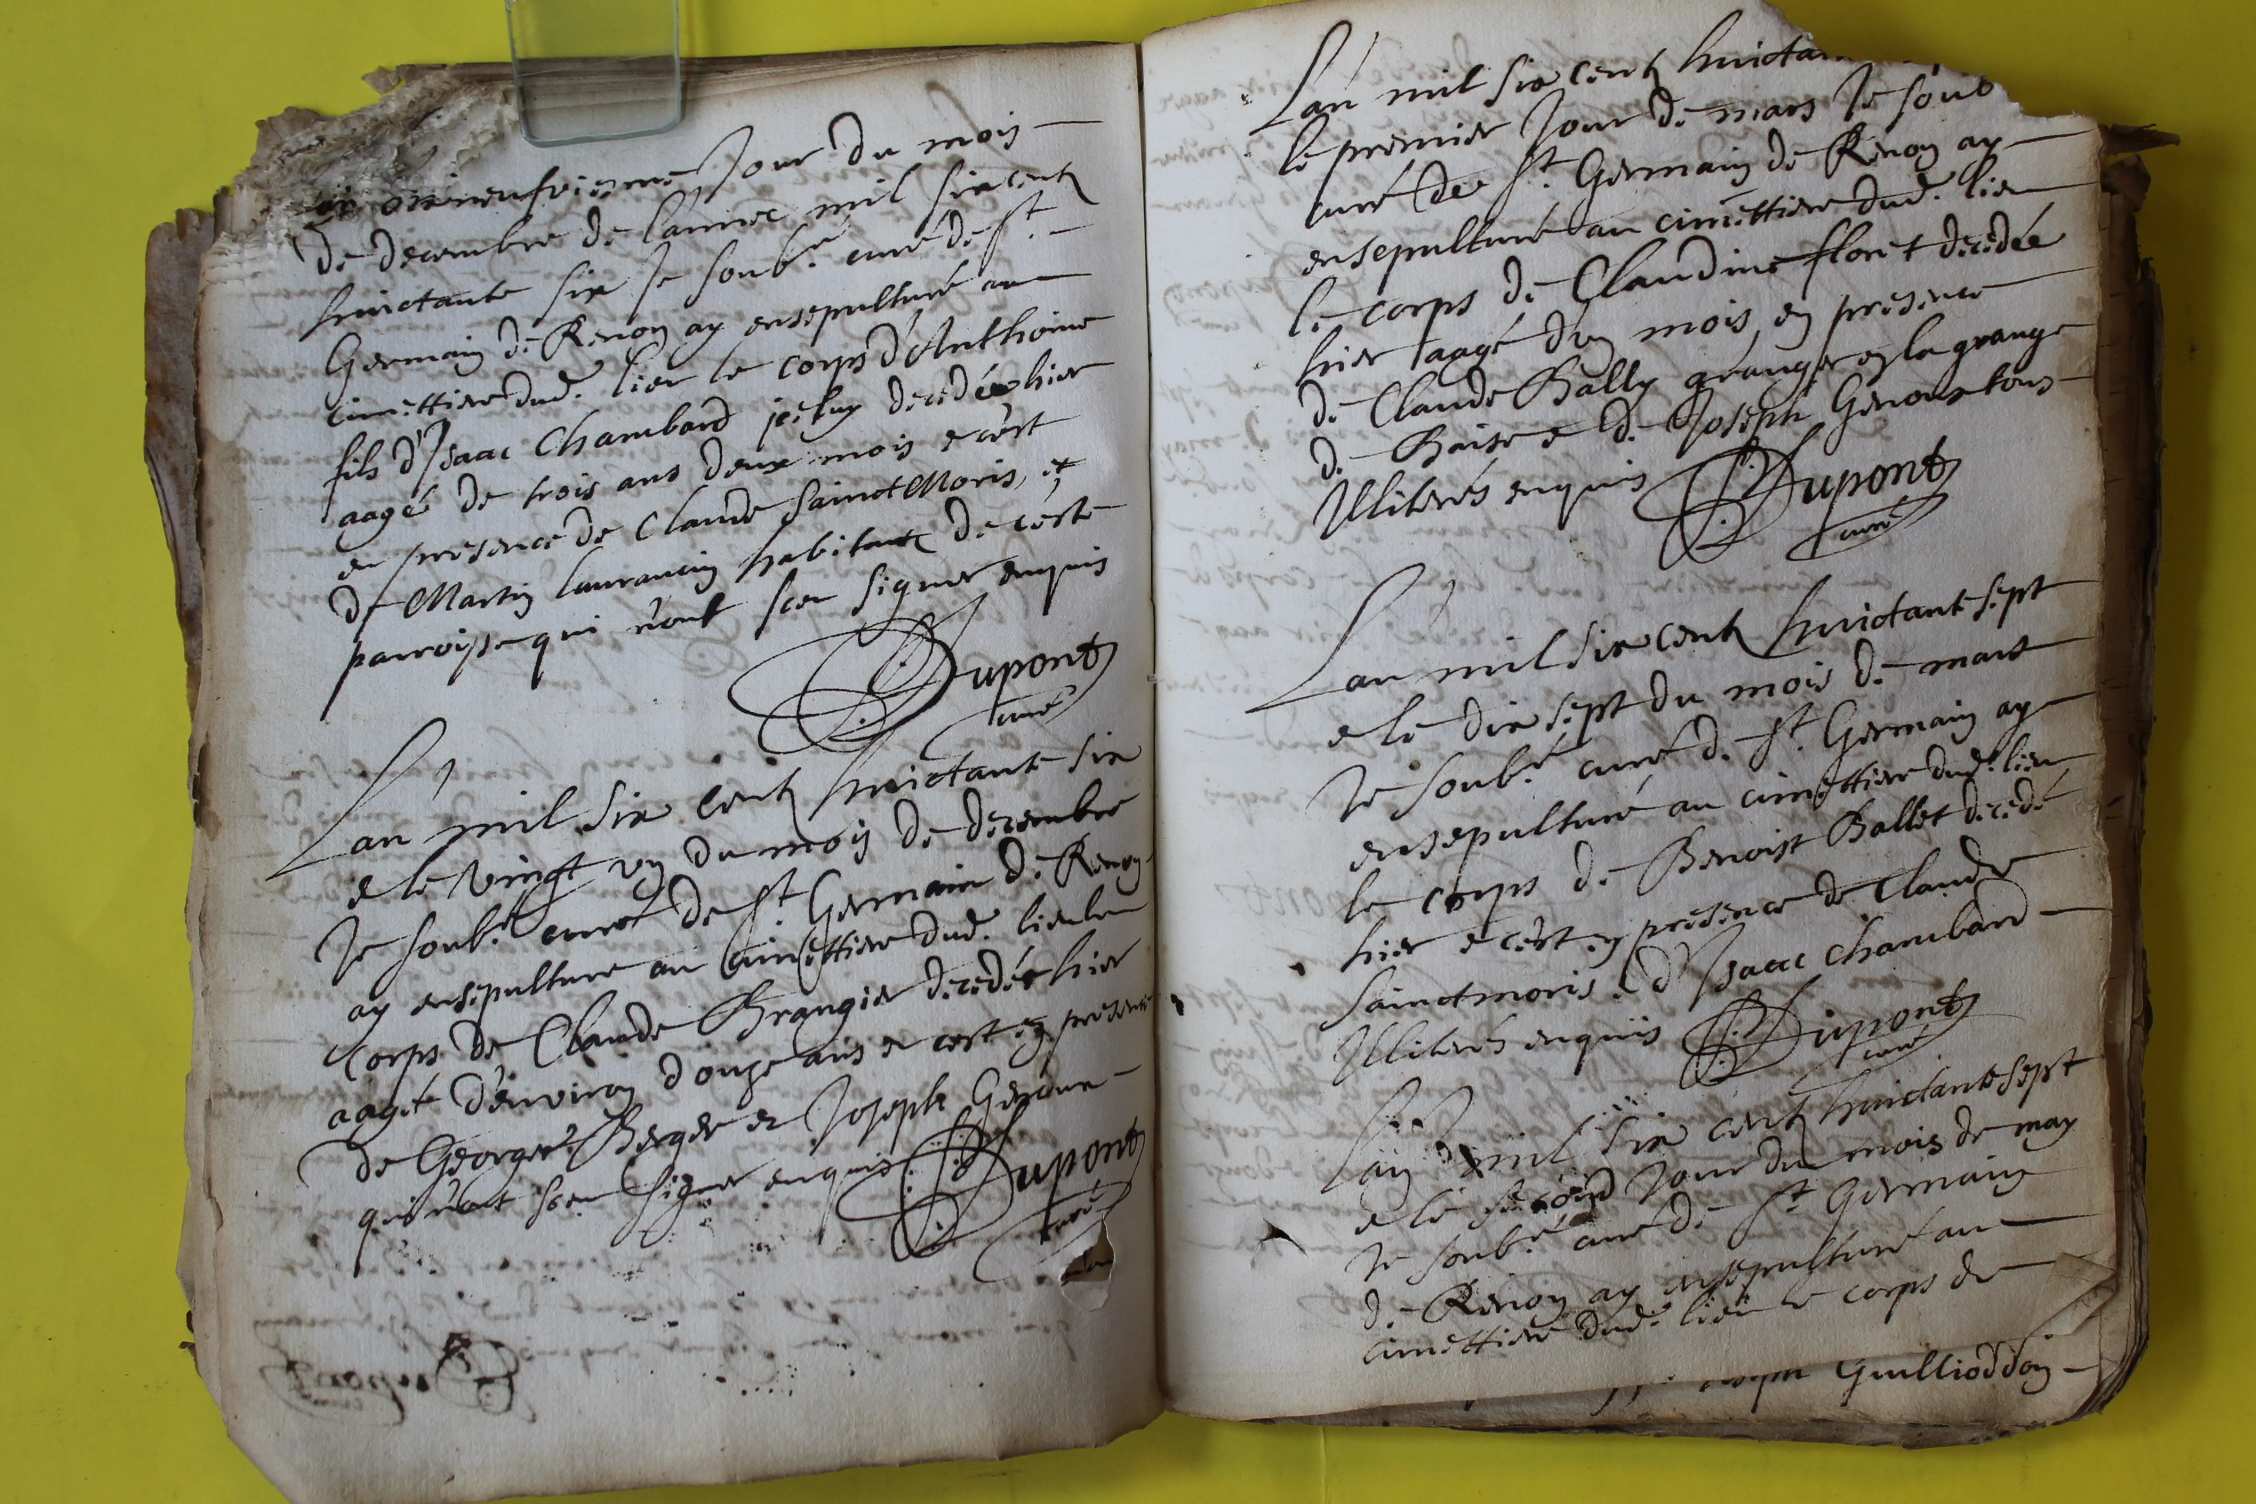 dixneufviesme Jour du mois
de decembre de l'annee mil six centz
huictante six Je soub.é curé de S.t
Germain de Renon ay ensepulturé au
cimettiere dud. lieu le corps d'Anthoine
fils d'Isaac Chambard iceluy decedée hier
aagé de trois ans deux mois e c'est
en presence de Claude Sainct Moris, et
de Martin laurancin habitantz de ceste
parroisse qui n'ont sceu signer enquis
Dupont
curé
L'an mil six centz huictante six
e le vingt un du mois de decembre
Je soub.é curé de S.t Germain de Renon
ay ensepulture au cimettiere dud. lieu le
corps de Claude Brangier decedée hier
aagée d'environ douze ans e c'est en presence
de George Berger et Joseph Genoux
qui n'ont sceu signer enquis Dupont
curé
L'an mil six centz
le premier Jour de mars Je soub
curé de S.t Germain de Renon ay
ensepulturé au cimettiere dud. lieu
le corps de Claudine floret decedée
hier aagé d'un mois en presence
de Claude Bally granger en la grange
de Baise e de Joseph Genoux tous
Illiterés enquis Dupont
curé
L'an mil six centz huictante sept
e le dix sept du mois de mars
Je soub.é curé de S.t Germain ay
ensepulturé au cimettiere dud. lieu
le corps de Benoist Ballet decedé
hier e c'est en presence de Claude
Sainctmoris e d'Isaac Chambard
Illiterés enquis Dupont
curé
L'an mil six centz huictante sept
e le second Jour du mois de may
Je soub.é curé de S.t Germain
de Renon ay ensepulturé au
cimettiere dud. lieu le corps de
Guillioddon